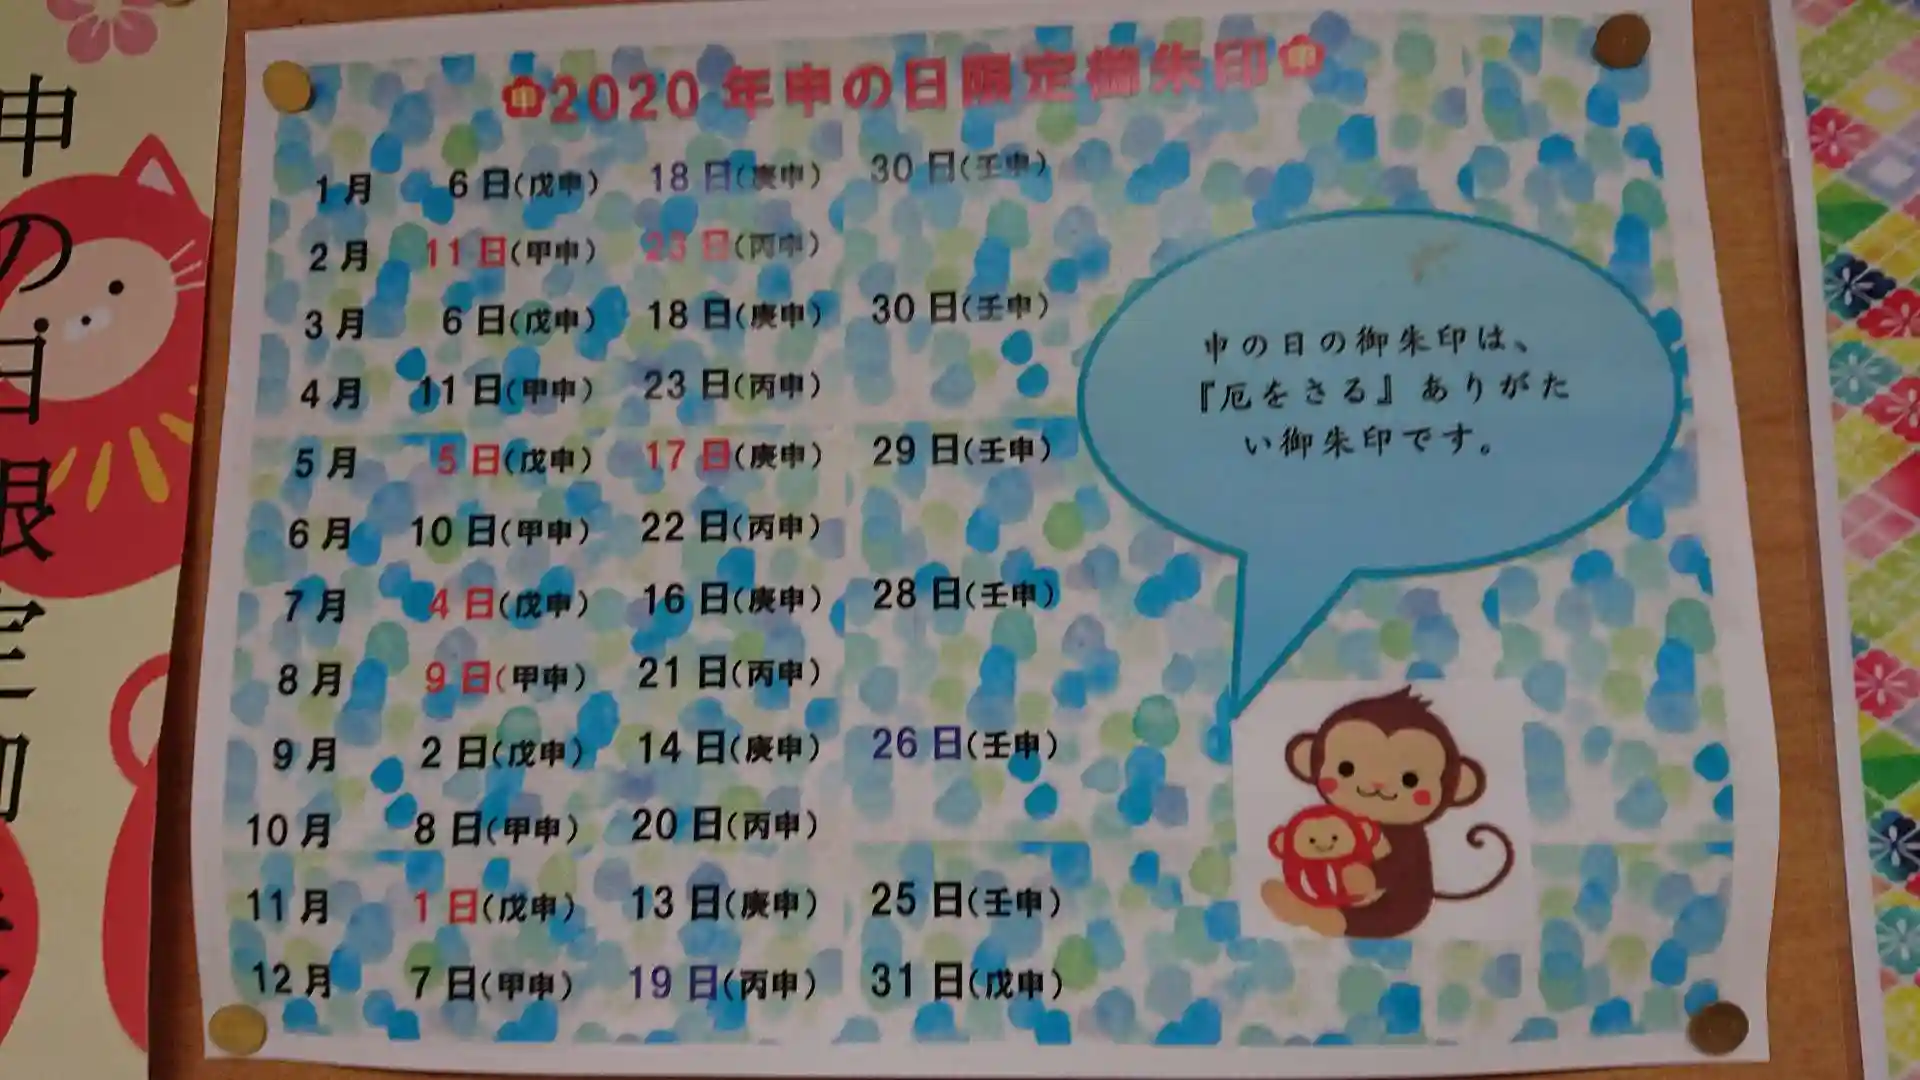 申の日限定御朱
2020年申の日限定御朱印
1月 6日(戊申) 18日(庚申) 30日(壬申)
2月 11日(甲申) 23日(丙申)
3月 6日(戊申) 18日(庚申) 30日(壬申)
4月 11日(甲申) 23日(丙申)
5月 5日(戊申) 17日(庚申) 29日(壬申)
6月 10日(甲申) 22日(丙申)
7月 4日(戊申) 16日(庚申) 28日(壬申)
8月 9日(甲申) 21日(丙申)
9月 2日(戊申) 14日(庚申) 26日(壬申)
10月 8日(甲申) 20日(丙申)
11月 1日(戊申) 13日(庚申) 25日(壬申)
12月 7日(甲申) 19日(丙申) 31日(戊申)
申の日の御朱印は、
『厄をさる』ありがた
い御朱印です。